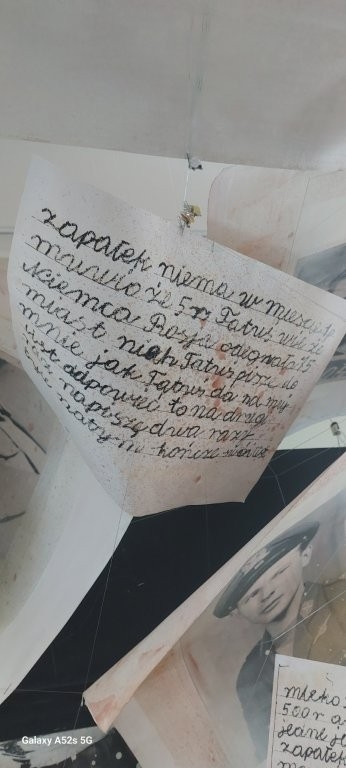 zapałek niema w mieście
mówio że 5 r Tatuś wie że
Niemca Rosja odegnała 15
miast niech Tatuś pisze do
mnie jak Tatuś da na mój
list odpowieć to na drugi
raz napiszę dwa razy
na tym kończe list
mleko
500 r a
jedne
zapałek
Galaxy A52s 5G